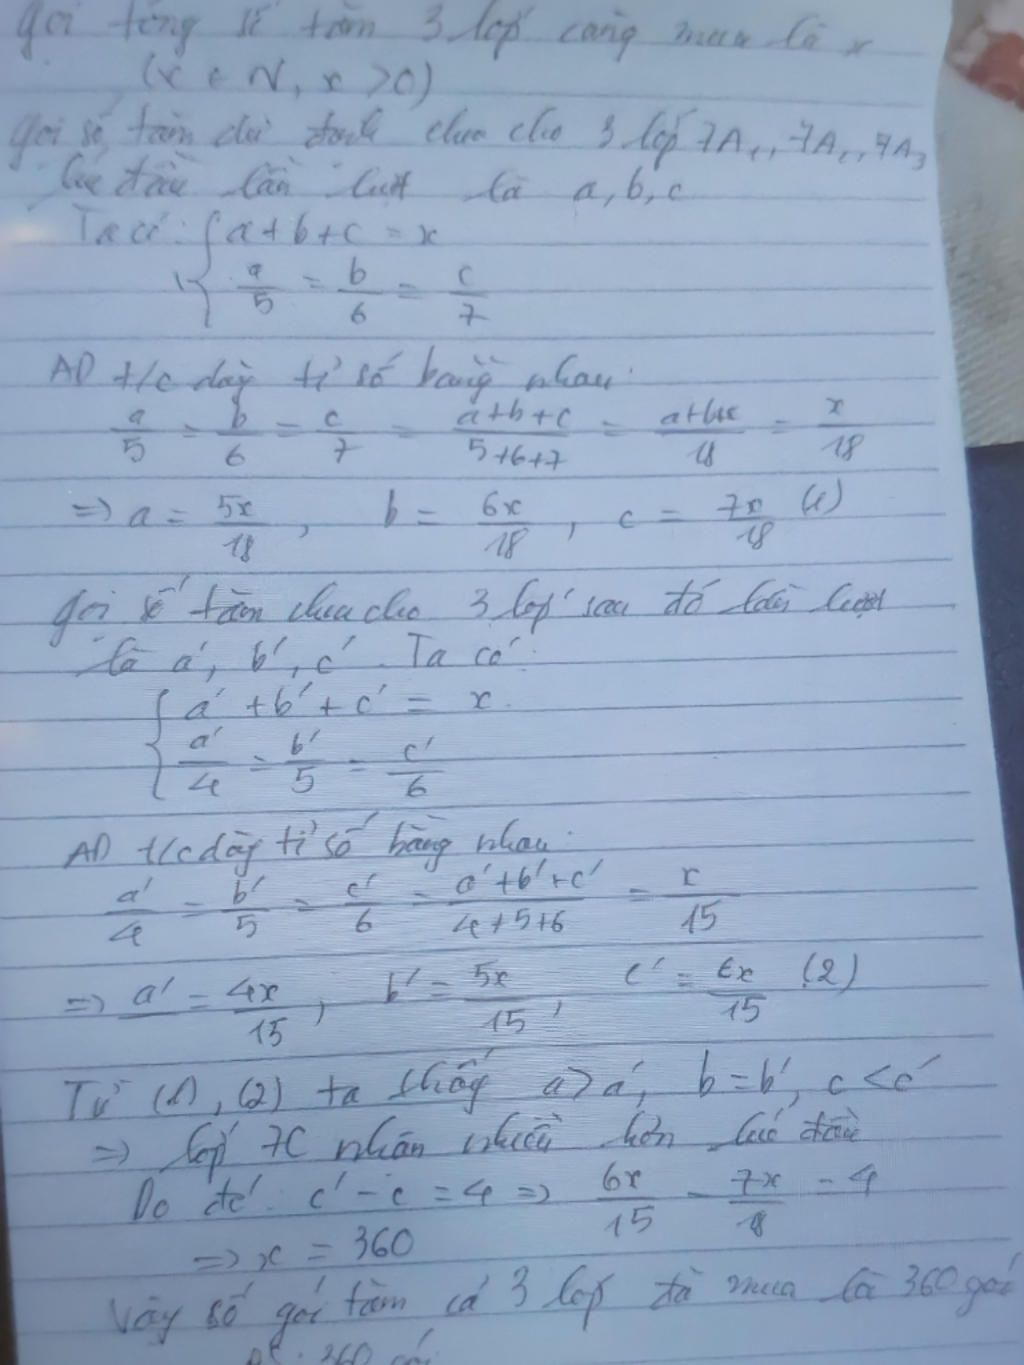 gọi tổng số tăm 3 lớp cùng mua là x
(x ∈ N, x > 0)
gọi số tăm dự định chia cho 3 lớp 7A₁, 7A₂, 7A₃
lúc đầu lần lượt là a, b, c
Ta có: { a + b + c = x
a/5 = b/6 = c/7
AD t/c dãy tỉ số bằng nhau:
a/5 = b/6 = c/7 = (a+b+c)/(5+6+7) = (a+b+c)/18 = x/18
=> a = 5x/18, b = 6x/18, c = 7x/18 (1)
gọi số tăm chia cho 3 lớp sau đó lần lượt
là a', b', c'. Ta có:
{ a' + b' + c' = x.
a'/4 = b'/5 = c'/6
AD t/c dãy tỉ số bằng nhau:
a'/4 = b'/5 = c'/6 = (a'+b'+c')/(4+5+6) = x/15
=> a' = 4x/15, b' = 5x/15, c' = 6x/15 (2)
Từ (1), (2) ta thấy a > a', b = b', c < c'
=> lớp 7C nhận nhiều hơn lúc đầu
Do đó: c' - c = 4 => 6x/15 - 7x/18 = 4
=> x = 360
Vậy số gói tăm cả 3 lớp đã mua là 360 gói
360 gói